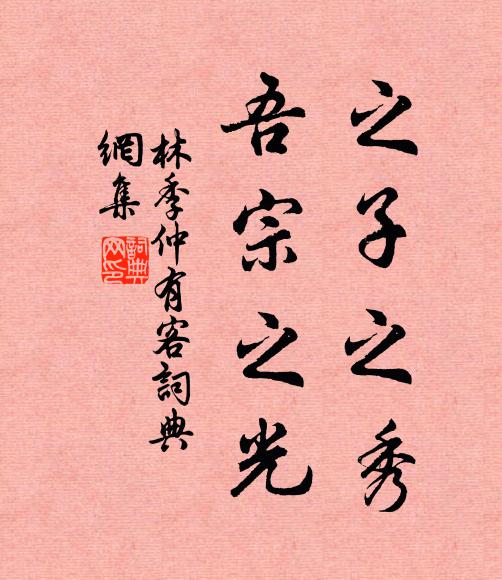 之子之秀
吾宗之光
林季仲有客詞典
網集
詞典网印